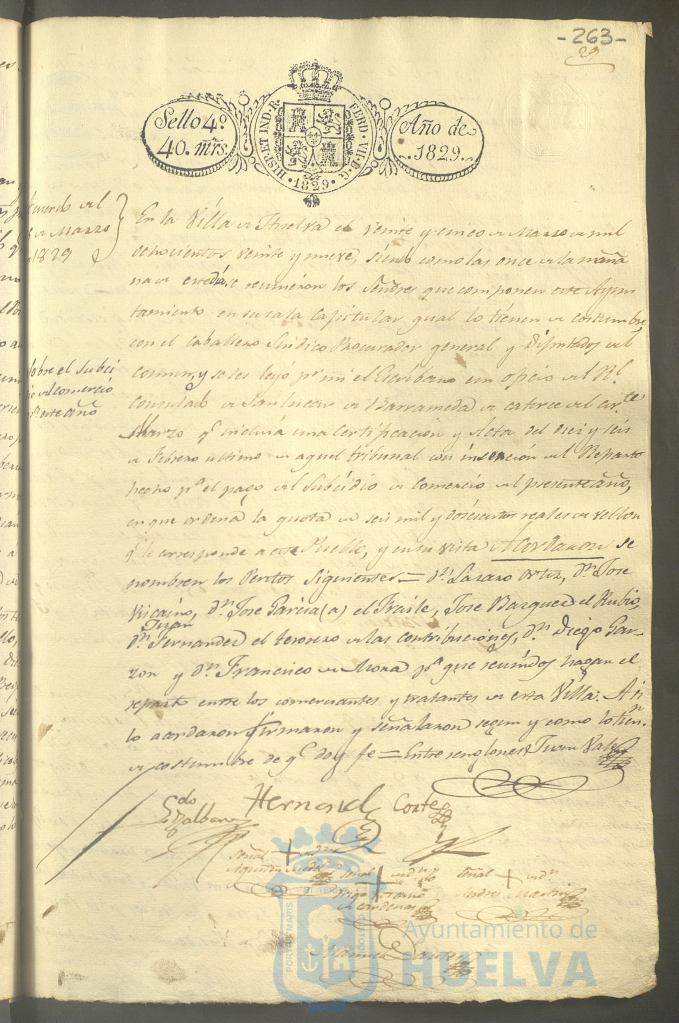 -263-
29
Sello 4º
40. mrs
HISP. ET IND. R.
FERD. VII. D. G.
1829
Año de
1829.
Acuerdo del
de Marzo
1829
En la Villa de Huelva el veinte y cinco de Marzo de mil
ochocientos veinte y nueve, siendo como las once de la maña
na de este día, se reunieron los Señores que componen este Ayun
tamiento en su sala Capitular qual lo tienen de costumbre
con el Caballero Síndico Procurador general y Diputados del
comun, y se les leyo pr mi el Escribano un oficio del Rl
Consulado de San Lucar de Barrameda de catorce del corte
Marzo qe incluía una Certificacion y Acta del diez y seis
de Febrero ultimo de aquel tribunal con insercion del Reparto
hecho pa el pago del Subsidio de Comercio del presente año,
en que ordena la quota de seis mil y doscientos reales de vellon
qe le corresponde a este Pueblo, y en su vista Acordaron se
nombren los Peritos siguientes = Dn Lazaro Ortiz, Dn Jose
Vicaino, Dn Jose Garcia (a) el Fraile, Jose Bazquez el Rubio,
Juan
Dn Fernandez el tesorero de las contribuciones, Dn Diego Gar
zon y Dn Francisco de Mora pa que reunidos hagan el
reparto entre los comerciantes y tratantes de esta Villa. Asi
lo acordaron firmaron y señalaron segun y como lo tienn
de costumbre de qe doy fe = Entre renglones Juan Vale
sobre el Subsi
dio del comercio
de este año
Hernand
Corte
Señal + de
Señal + de
Señal + de
Andres Martin
Ayuntamiento de
HUELVA
PORTUS MARIS